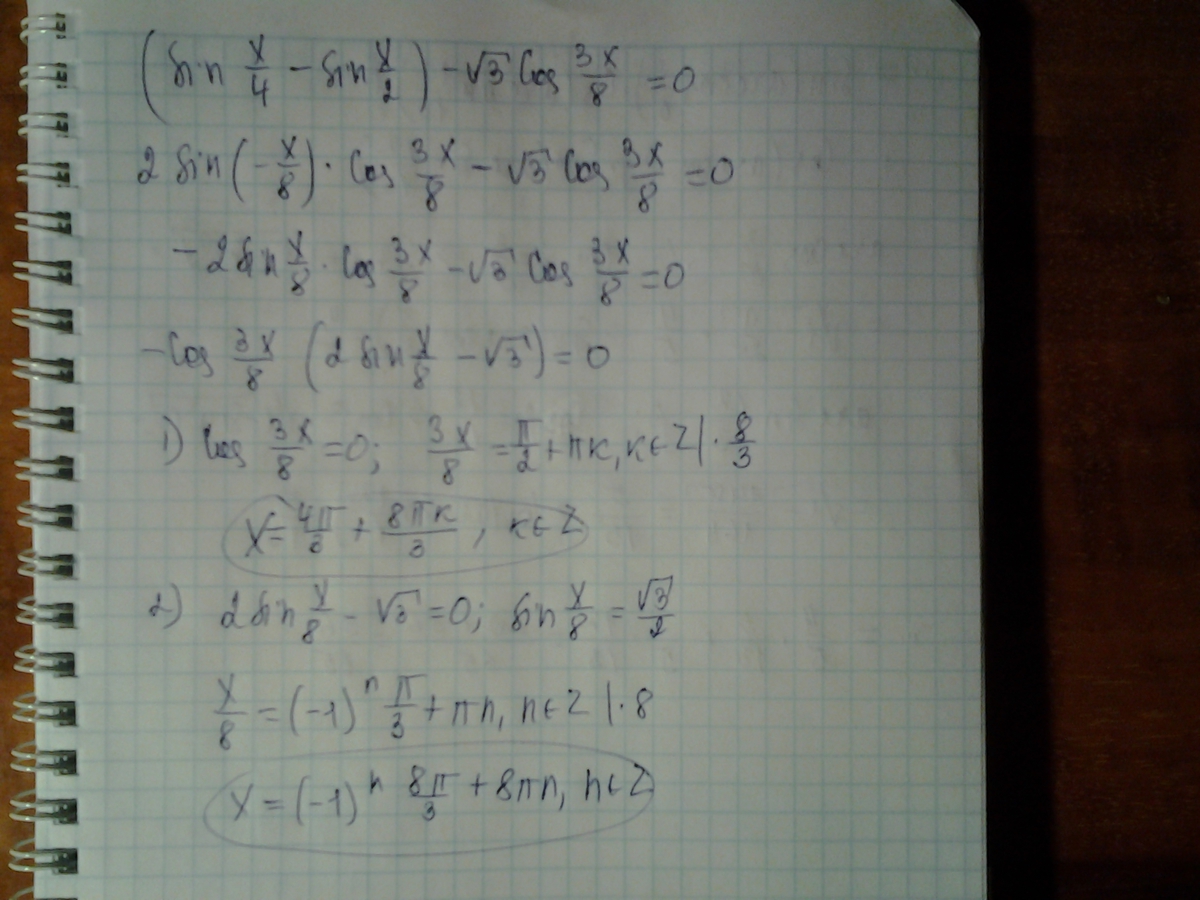 (sin x/4 − sin x/2) − √3 cos 3x/8 = 0
2 sin(−x/8) · cos 3x/8 − √3 cos 3x/8 = 0
−2 sin x/8 · cos 3x/8 − √3 cos 3x/8 = 0
−cos 3x/8 (2 sin x/8 − √3) = 0
1) cos 3x/8 = 0; 3x/8 = π/2 + πк, к ∈ Z | · 8/3
x = 4π/3 + 8πк/3, к ∈ Z
2) 2 sin x/8 − √3 = 0; sin x/8 = √3/2
x/8 = (−1)ⁿ π/3 + πn, n ∈ Z | · 8
x = (−1)ⁿ 8π/3 + 8πn, n ∈ Z